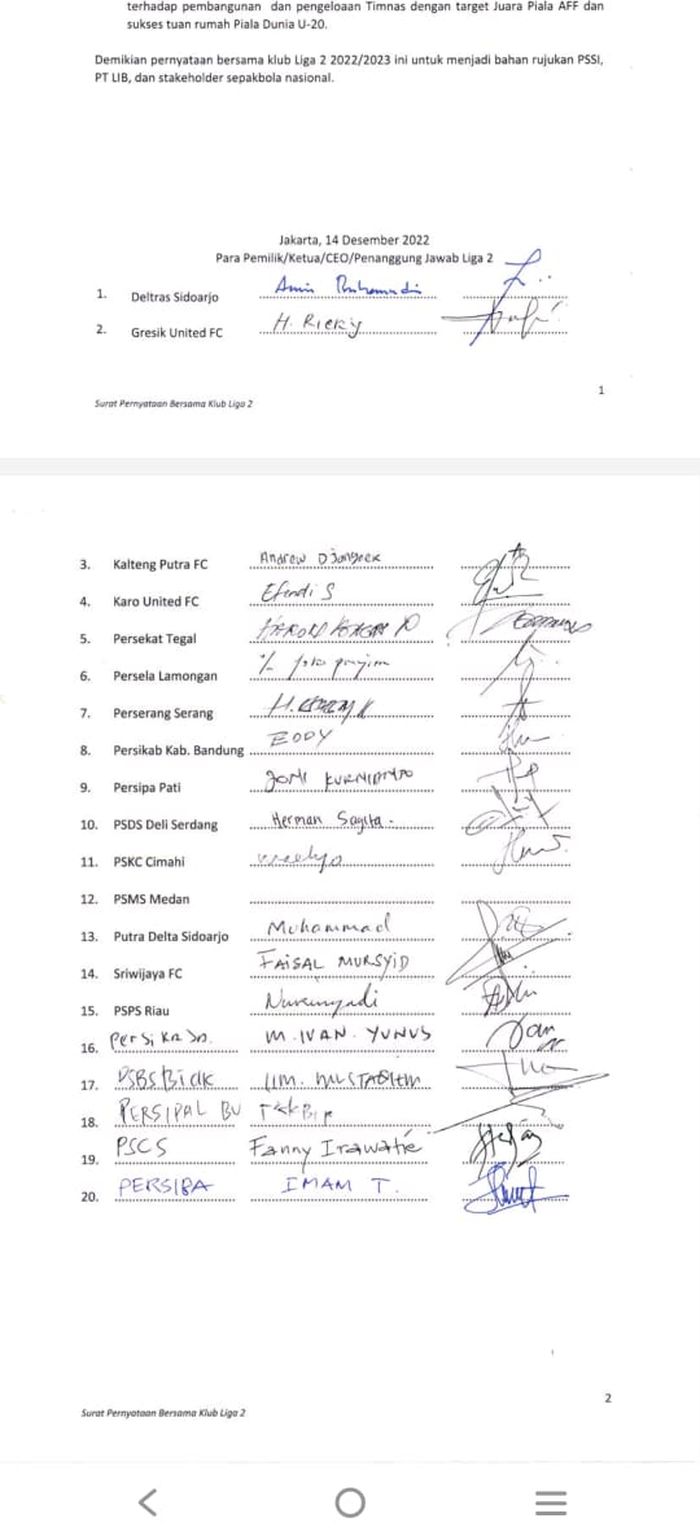 terhadap pembangunan dan pengeloaan Timnas dengan target Juara Piala AFF dan
sukses tuan rumah Piala Dunia U-20.
Demikian pernyataan bersama klub Liga 2 2022/2023 ini untuk menjadi bahan rujukan PSSI,
PT LIB, dan stakeholder sepakbola nasional.
Jakarta, 14 Desember 2022
Para Pemilik/Ketua/CEO/Penanggung Jawab Liga 2
1. Deltras Sidoarjo Amir
2. Gresik United FC H. Ricky
Surat Pernyataan Bersama Klub Liga 2
1
3. Kalteng Putra FC Andrew
4. Karo United FC Efendi S
5. Persekat Tegal
6. Persela Lamongan
7. Perserang Serang
8. Persikab Kab. Bandung EDDY
9. Persipa Pati JONI KURNIANTO
10. PSDS Deli Serdang Herman Sagita
11. PSKC Cimahi
12. PSMS Medan
13. Putra Delta Sidoarjo Muhammad
14. Sriwijaya FC FAISAL MURSYID
15. PSPS Riau
16. M. IVAN YUNUS
17. PSBS Biak
18. PERSIPAL BU
19. PSCS Fanny Irawatie
20. PERSIBA IMAM T.
Surat Pernyataan Bersama Klub Liga 2
2